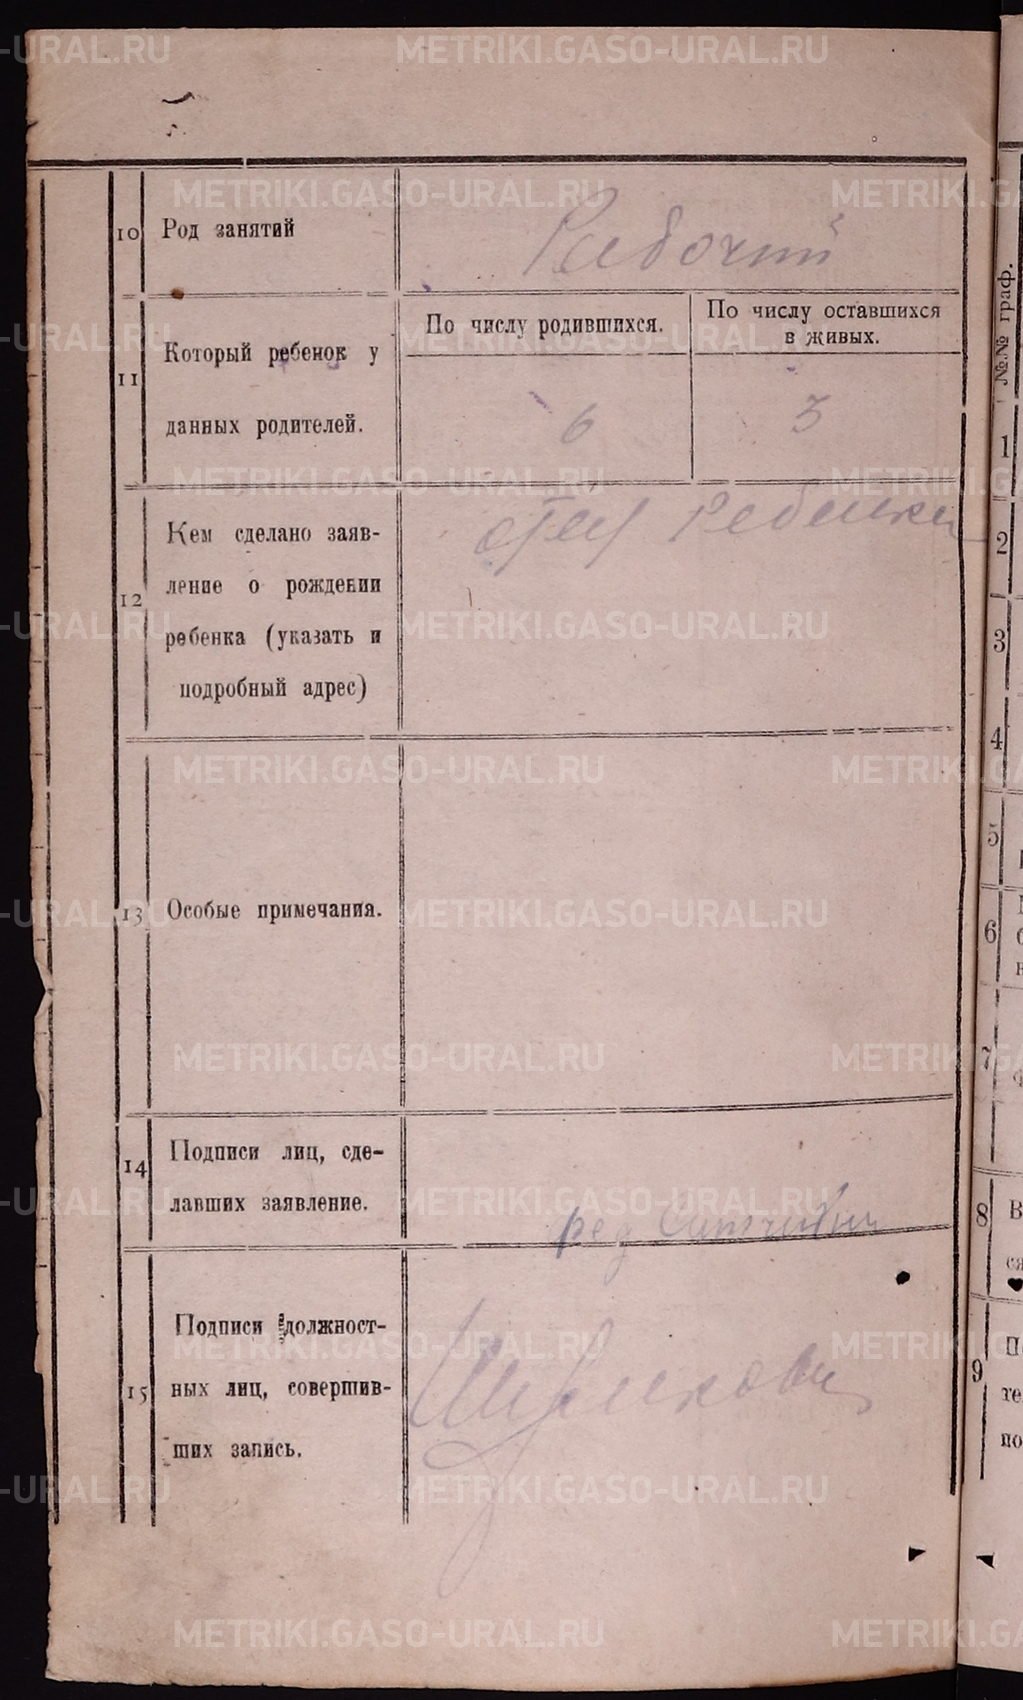 10 Род занятий Рабочий
11 Который ребенок у данных родителей.
По числу родившихся.
По числу оставшихся
в живых.
6
3
12 Кем сделано заяв-
ление о рождении
ребенка (указать и
подробный адрес)
отец ребенка
13 Особые примечания.
14 Подписи лиц, сде-
лавших заявление.
15 Подписи должност-
ных лиц, совершив-
ших запись.
№№ граф.
1
2
3
4
5
6
7
8
9
METRIKI.GASO-URAL.RU